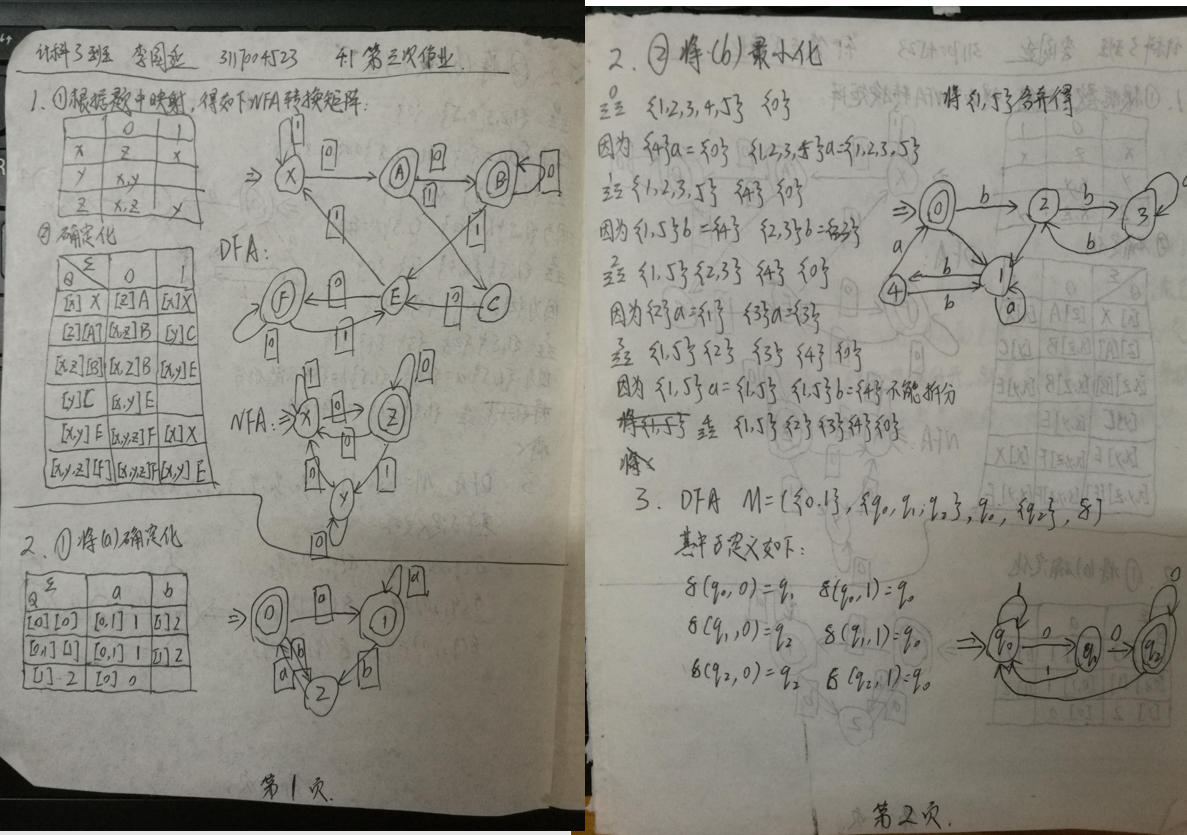 计科3班 李国 3117004523 41 第三次作业
1. ①根据题中映射,得如下NFA转换矩阵:
0 1
X Z X
Y X,Y
Z X,Z Y
② 确定化
DFA:
Q Σ 0 1
[X] X [Z] A [X] X
[Z] [A] [X,Z] B [Y] C
[X,Z] [B] [X,Z] B [X,Y] E
[Y] C [X,Y] E
[X,Y] E [X,Y,Z] F [X] X
[X,Y,Z] [F] [X,Y,Z] F [X,Y] E
⇒ X 1 0 A 0 1 B 0
1 1
F 0 E 0 C
0 1
NFA: ⇒ X 1 0 Z 0
0
0 1
Y
0
2. ① 将(a)确定化
Q Σ a b
[0] [0] [0,1] 1 [1] 2
[0,1] [1] [0,1] 1 [1] 2
[1] 2 [0] 0
⇒ 0 a 1 a
a b b
2
第1页.
2. ② 将(b)最小化
{1,2,3,4,5} {0}
将{1,5}合并得
因为{4}a={0} {1,2,3,5}a={1,2,3,5}
{1,2,3,5} {4} {0}
因为{1,5}b={4} {2,3}b={2,3}
{1,5} {2,3} {4} {0}
因为{2}a={1} {3}a={3}
{1,5} {2} {3} {4} {0}
因为 {1,5}a={1,5} {1,5}b={4}不能拆分
将{1,5} {1,5} {2} {3} {4} {0}
将
⇒ 0 b 2 b 3 a
b
a
4 b 1
b
a
3. DFA M=({0,1}, {q0, q1, q2}, q0, {q2}, δ)
其中δ定义如下:
δ(q0, 0)=q1 δ(q0, 1)=q0
δ(q1, 0)=q2 δ(q1, 1)=q0
δ(q2, 0)=q2 δ(q2, 1)=q0
⇒ q0 1 0 q1 0 q2 0
1
第2页.